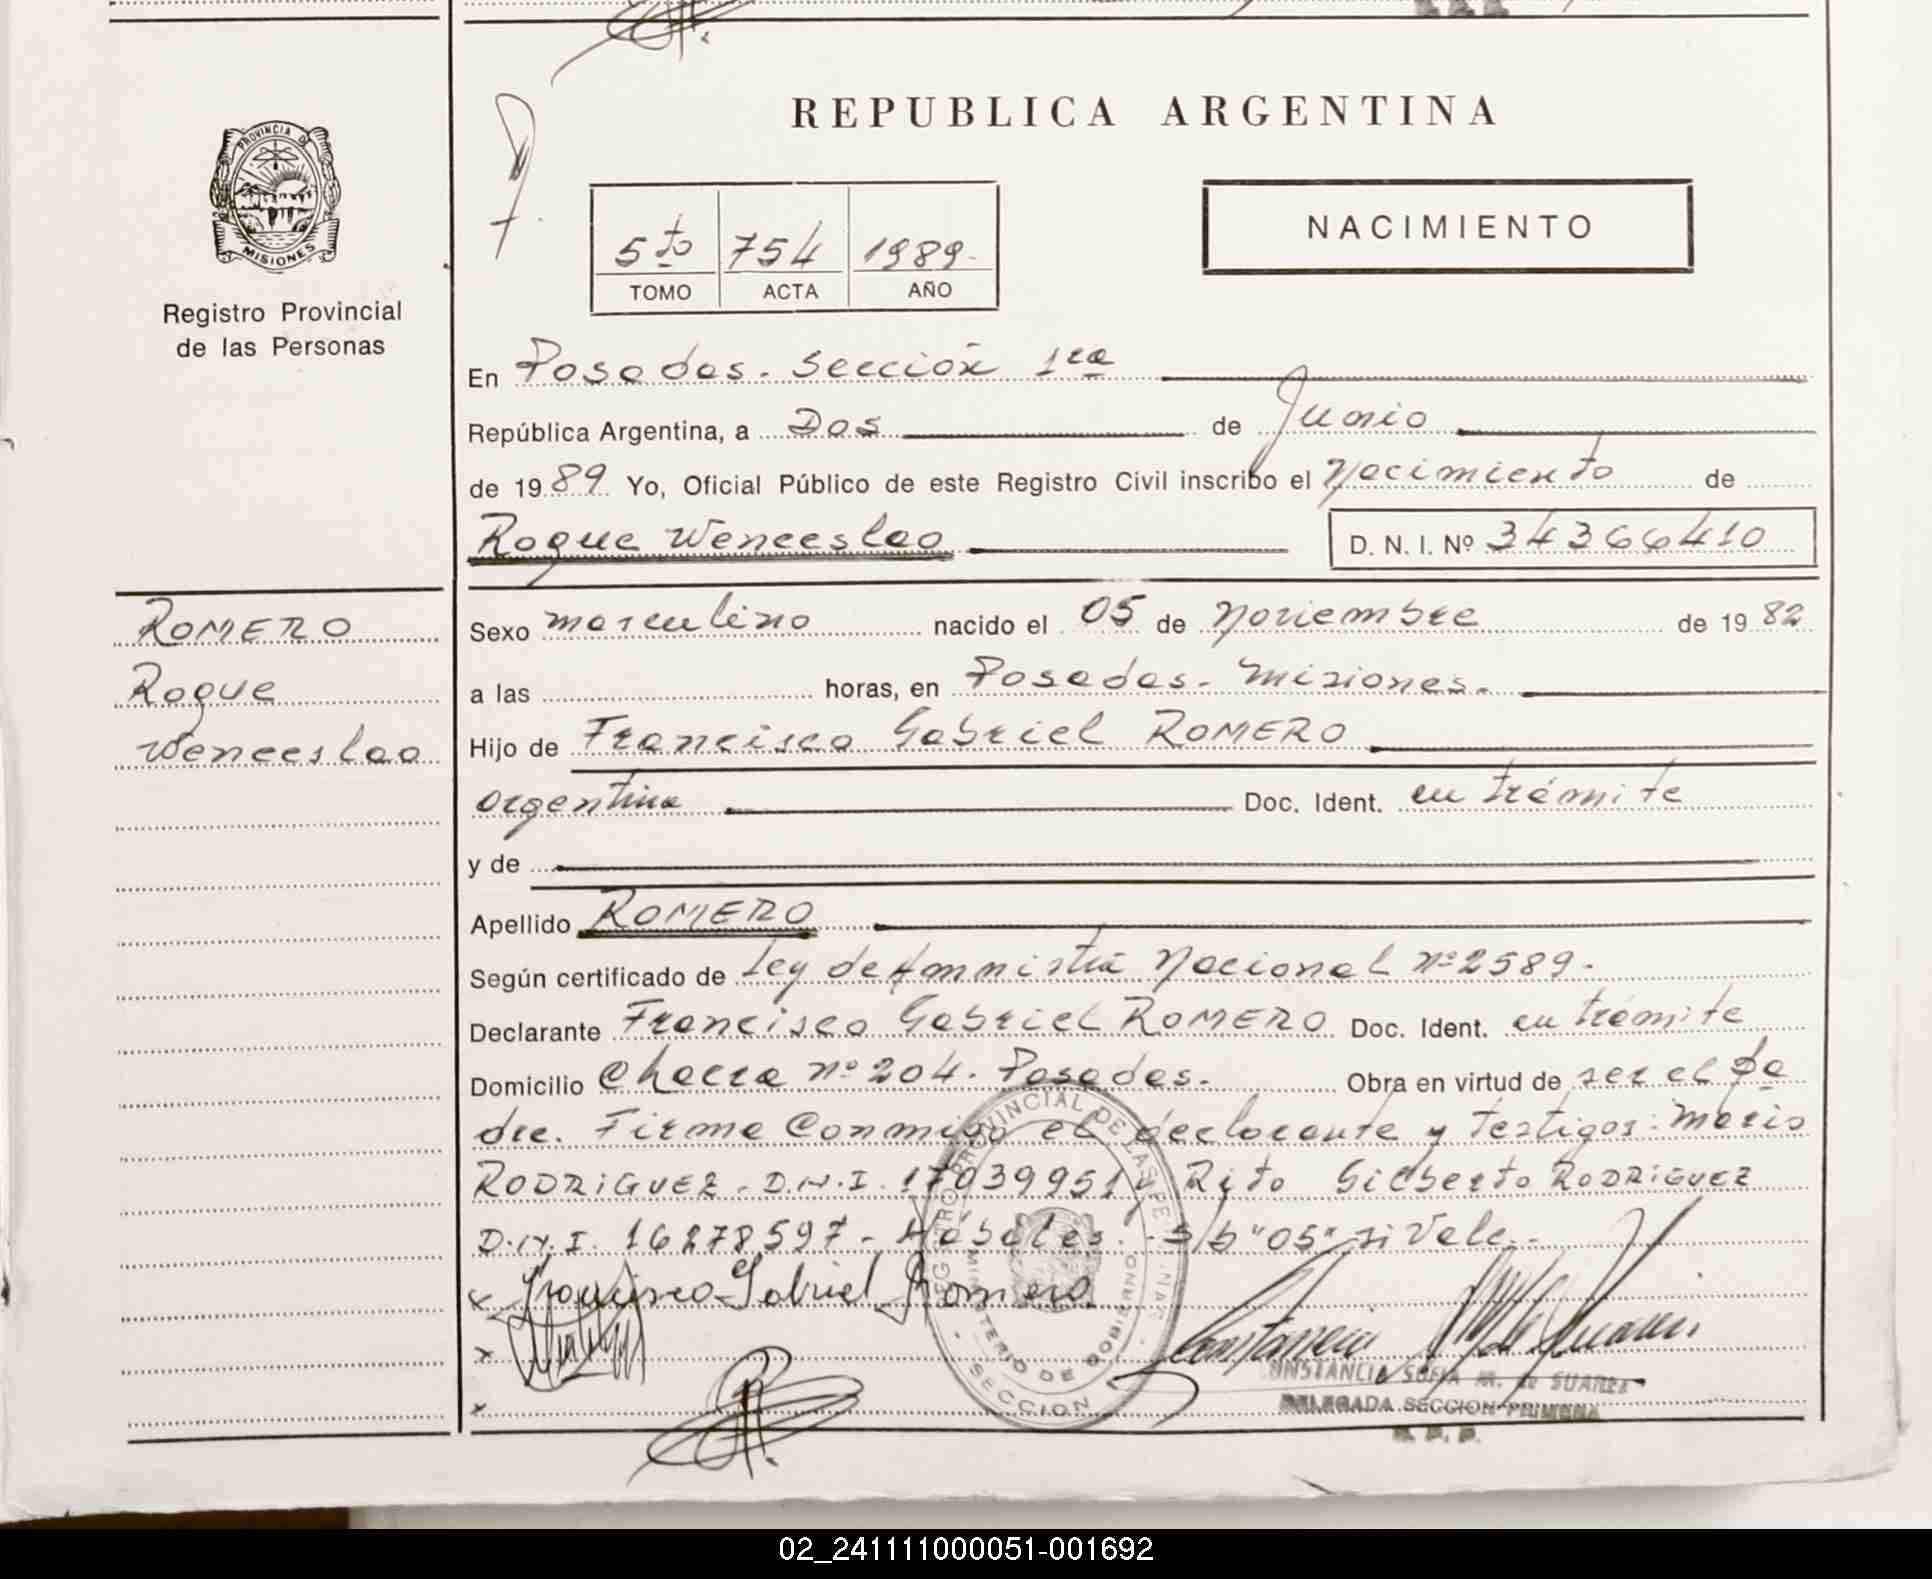 REPUBLICA ARGENTINA
PROVINCIA DE
MISIONES
Registro Provincial
de las Personas
5to 754 1989.
TOMO ACTA AÑO
NACIMIENTO
En Posadas. Sección 1ra
República Argentina, a Dos de Junio
de 1989 Yo, Oficial Público de este Registro Civil inscribo el Nacimiento de
Roque Wenceslao D. N. I. Nº 34366410
ROMERO
Roque
Wenceslao
Sexo masculino nacido el 05 de Noviembre de 1982
a las horas, en Posadas. Misiones.
Hijo de Francisco Gabriel ROMERO
argentina Doc. Ident. en trámite
y de
Apellido ROMERO
Según certificado de Ley de Amnistía Nacional nº 2589.
Declarante Francisco Gabriel ROMERO Doc. Ident. en trámite
Domicilio Chacra nº 204. Posadas. Obra en virtud de ser el Pa
dre. Firma Conmigo el declarante y testigos: Mario
RODRIGUEZ. D.N.I. 17039951 y Rito Gilberto RODRIGUEZ
D.N.I. 16278597- Hábiles. S/b "05" si Vale.-
x Francisco Gabriel Romero
x
x
REGISTRO PROVINCIAL DE LAS PERSONAS
MINISTERIO DE GOBIERNO
SECCION 1
CONSTANCIA SOFIA M. de SUAREZ
DELEGADA SECCION PRIMERA
R. P. P.
02_241111000051-001692